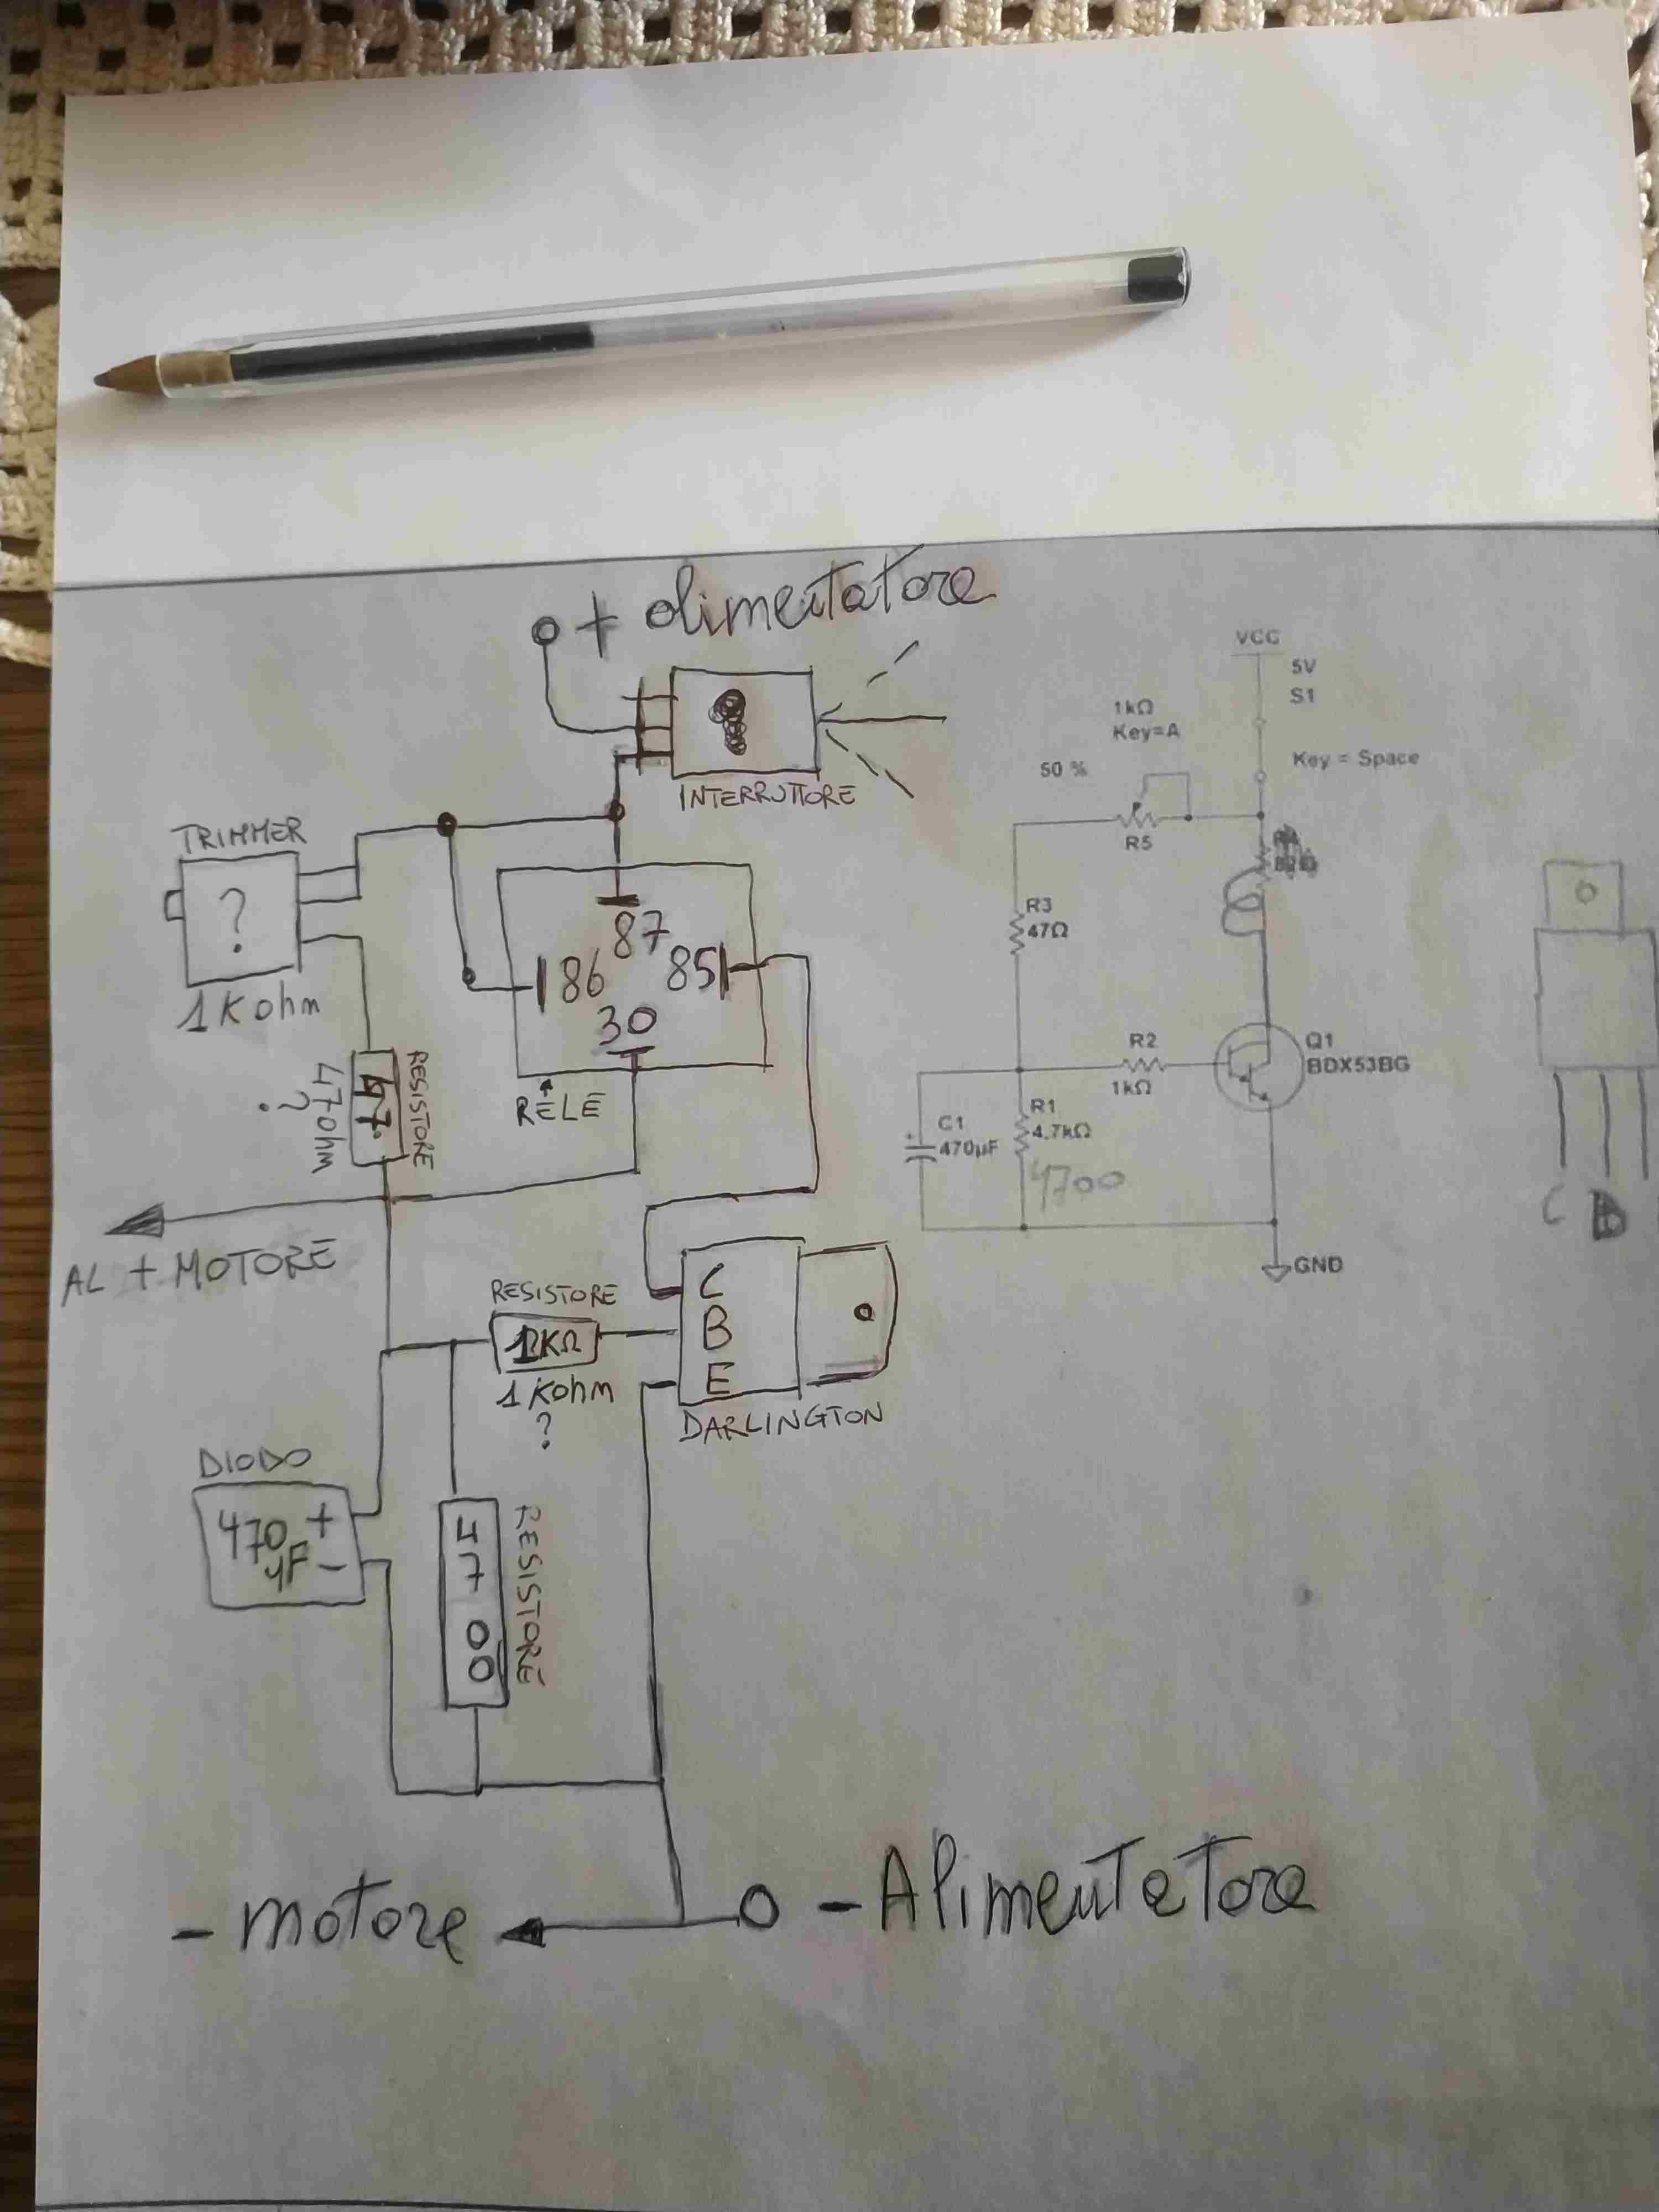 + alimentatore
INTERRUTTORE
TRIMMER
?
1K ohm
87
86
85
30
RELE
RESISTORE
47
47ohm
?
AL + MOTORE
RESISTORE
1KΩ
1Kohm
?
C
B
E
DARLINGTON
DIODO
470 +
µF -
RESISTORE
4700
- motore
- Alimentatore
VCC
5V
S1
Key = Space
1kΩ
Key=A
50 %
R5
R3
47Ω
R2
1kΩ
Q1
BDX53BG
C1
470µF
R1
4.7kΩ
4700
GND
C B